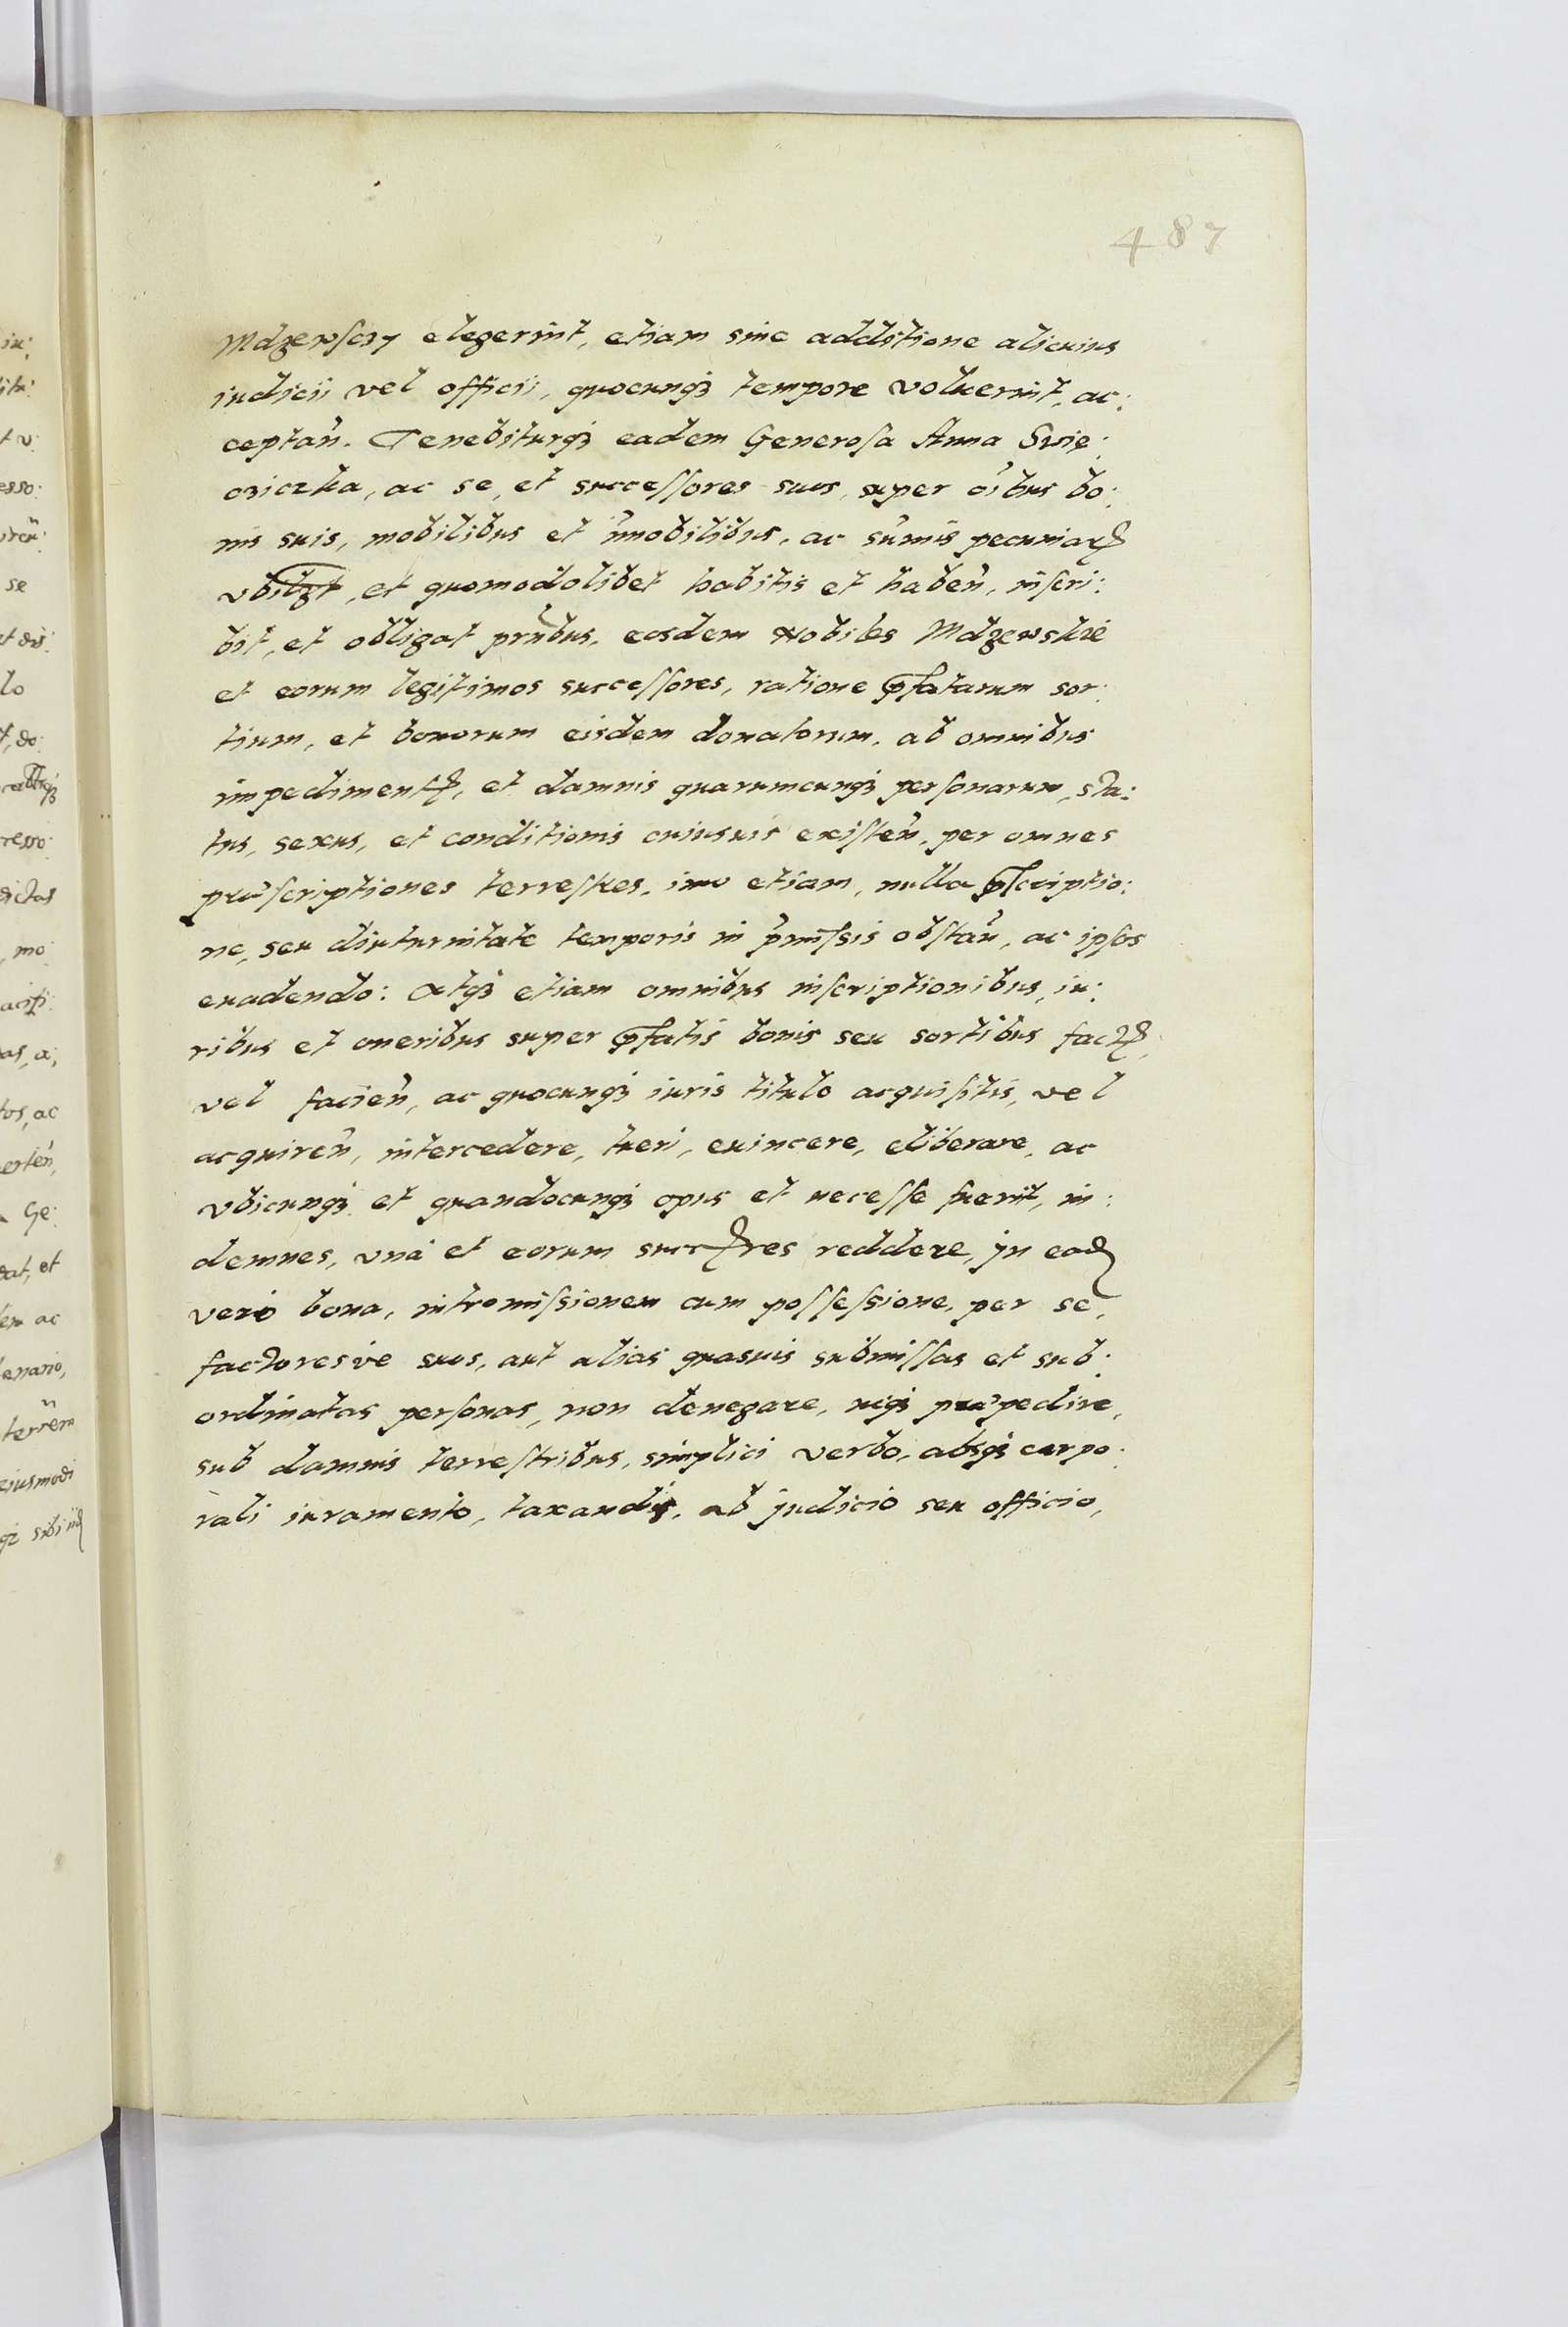 487
Mdzewsczy elegerint, etiam sine additione alicuius
iudicii vel officii, quocunqz tempore voluerint, ac:
ceptan̄. Tenebiturqz eadem Generosa Anna Swię:
cziczka, ac se, et successores suos, super oībus bo:
nis suis, mobilibus et īmobilibus, ac sūmis pecuniarꝝ
vbilꝫt, et quomodolibet habitis et haben̄, inscri:
bit, et obligat prn̄bus, eosdem Nobiles Mdzewskie
et eorum legitimos successores, ratione p̄fatarum sor:
tium, et bonorum eisdem donatorum, ab omnibus
impedimentꝭ, et damnis quarumcunqz personarum, sta:
tus, sexus, et conditionis cuiusuis existen̄, per omnes
præscriptiones terrestres, imo etiam, nulla p̄scriptio:
ne, seu diuturnitate temporis in p̄missis obstan̄, ac ipsos
euadendo: Atqz etiam omnibus inscriptionibus, iu:
ribus et oneribus super p̄fatis bonis seu sortibus factꝭ,
vel facien̄, ac quocunqz iuris titulo acquisitis, vel
acquiren̄, intercedere, tueri, euincere, eliberare, ac
vbicunqz et quandocunqz opus et necesse fuerit, in:
demnes, unà et eorum succꝭres reddere, jn eadꝭ
verò bona, intromissionem cum possessione, per se,
factoresve suos, aut alias quasuis submissas et sub:
ordinatas personas, non denegare, neqz præpedire,
sub damnis terrestribus, simplici verbo, absqz corpo:
rali iuramento, taxandis, ad judicio seu officio,